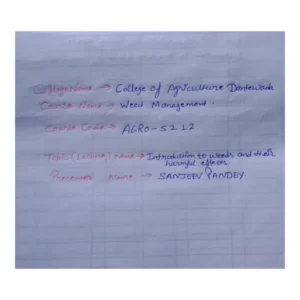 College Name → College of Agriculture Dantewada
Course Name → Weed Management.
Course Code → AGRO-5212
Topic (Lecture) name → Introduction to weeds and their
harmful effects.
Presenter Name → SANJEEV PANDEY